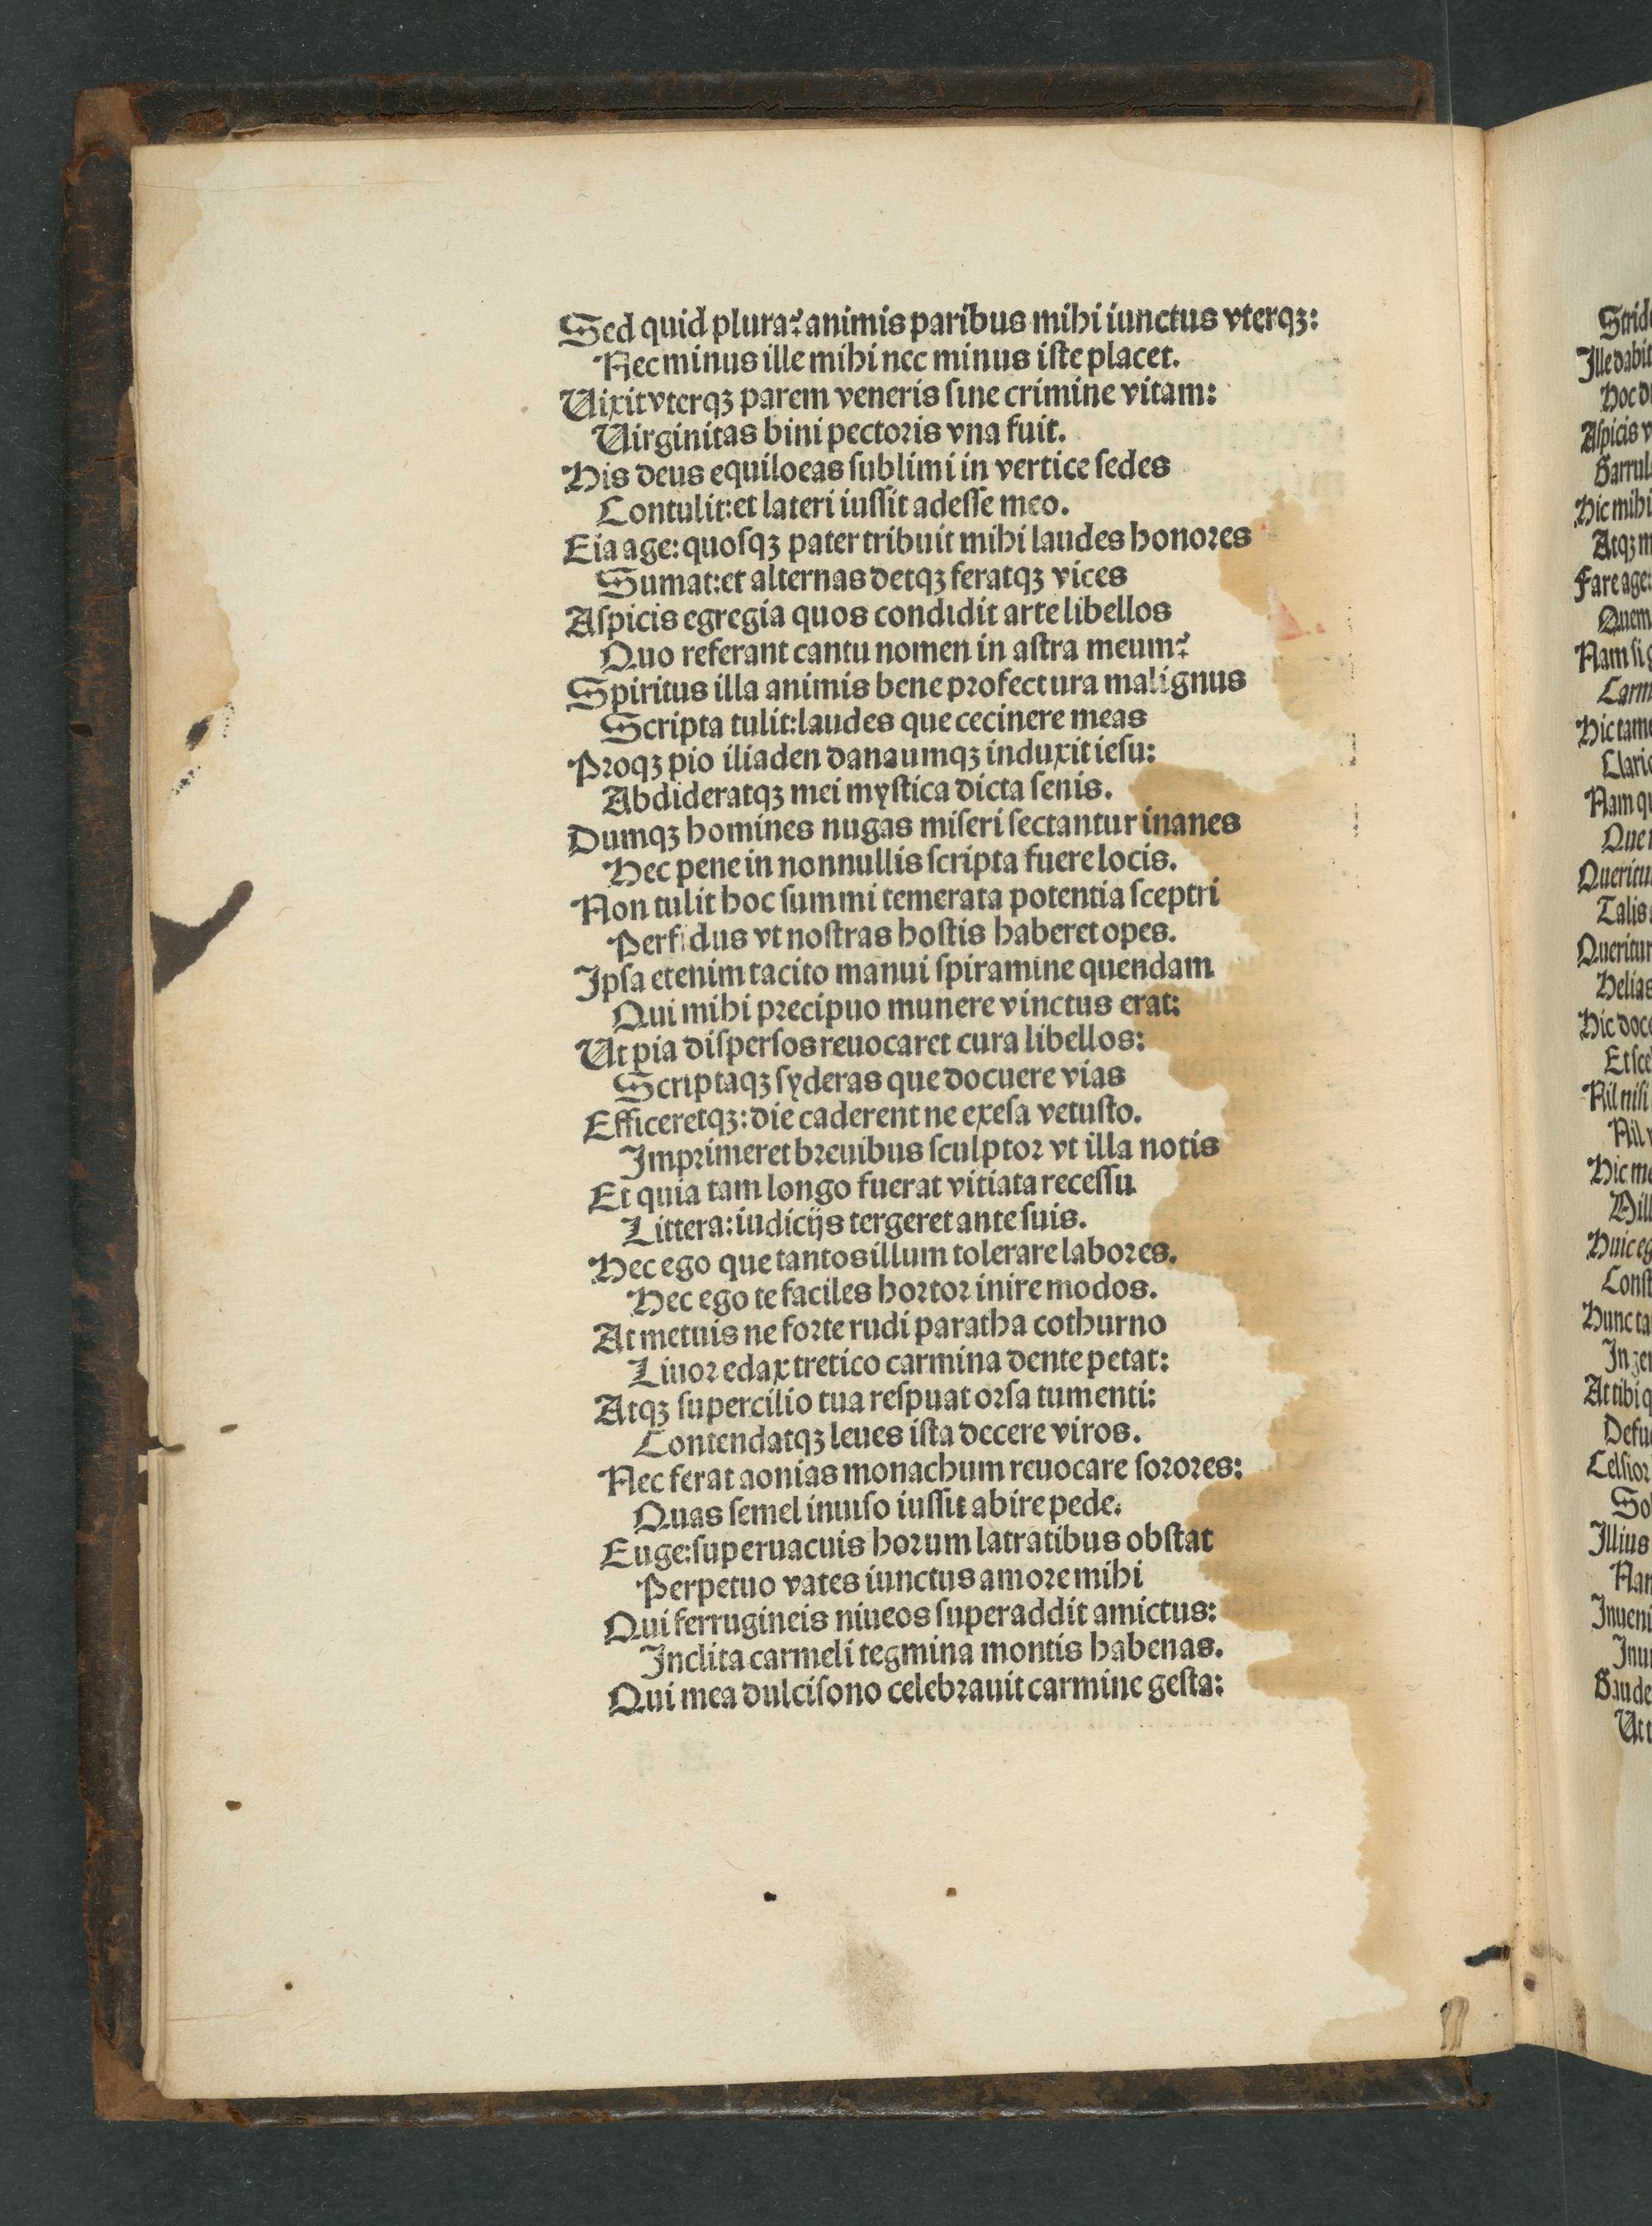 Sed quid plura? animis paribus mihi iunctus vterqꝫ:
Nec minus ille mihi nec minus iste placet.
Uixit vterqꝫ parem veneris sine crimine vitam:
Uirginitas bini pectoris vna fuit.
His deus equiloeas sublimi in vertice sedes
Contulit: et lateri iussit adesse meo.
Eia age: quosqꝫ pater tribuit mihi laudes honores
Sumat: et alternas detqꝫ feratqꝫ vices
Aspicis egregia quos condidit arte libellos
Quo referant cantu nomen in astra meum?
Spiritus illa animis bene profectura malignus
Scripta tulit: laudes que cecinere meas
Proqꝫ pio iliaden danaumqꝫ induxit iesu:
Abdideratqꝫ mei mystica dicta senis.
Dumqꝫ homines nugas miseri sectantur inanes
Hec pene in nonnullis scripta fuere locis.
Non tulit hoc summi temerata potentia sceptri
Perfidus vt nostras hostis haberet opes.
Ipsa etenim tacito manui spiramine quendam
Qui mihi precipuo munere vinctus erat:
Ut pia dispersos reuocaret cura libellos:
Scriptaqꝫ syderas que docuere vias
Efficeretqꝫ: die caderent ne exesa vetusto.
Imprimeret breuibus sculptor vt illa notis
Et quia tam longo fuerat vitiata recessu
Littera: iudicijs tergeret ante suis.
Hec ego que tantos illum tolerare labores.
Hec ego te faciles hortor inire modos.
At metuis ne forte rudi paratha cothurno
Liuor edax tretico carmina dente petat:
Atqꝫ supercilio tua respuat orsa tumenti:
Contendatqꝫ leues ista decere viros.
Nec ferat aonias monachum reuocare sorores:
Quas semel inuiso iussit abire pede.
Euge: superuacuis horum latratibus obstat
Perpetuo vates iunctus amore mihi
Qui ferrugineis niueos superaddit amictus:
Inclita carmeli tegmina montis habenas.
Qui mea dulcisono celebrauit carmine gesta:
Ille dabit
Hoc
Aspicis
Hic mihi
Atqꝫ
Fare age:
Quem
Nam
Hic
Nam
Que
Talis
Helias
Hic
Nil nisi
Nil
Hic
Hunc
In
At tibi
Celsior
Illius